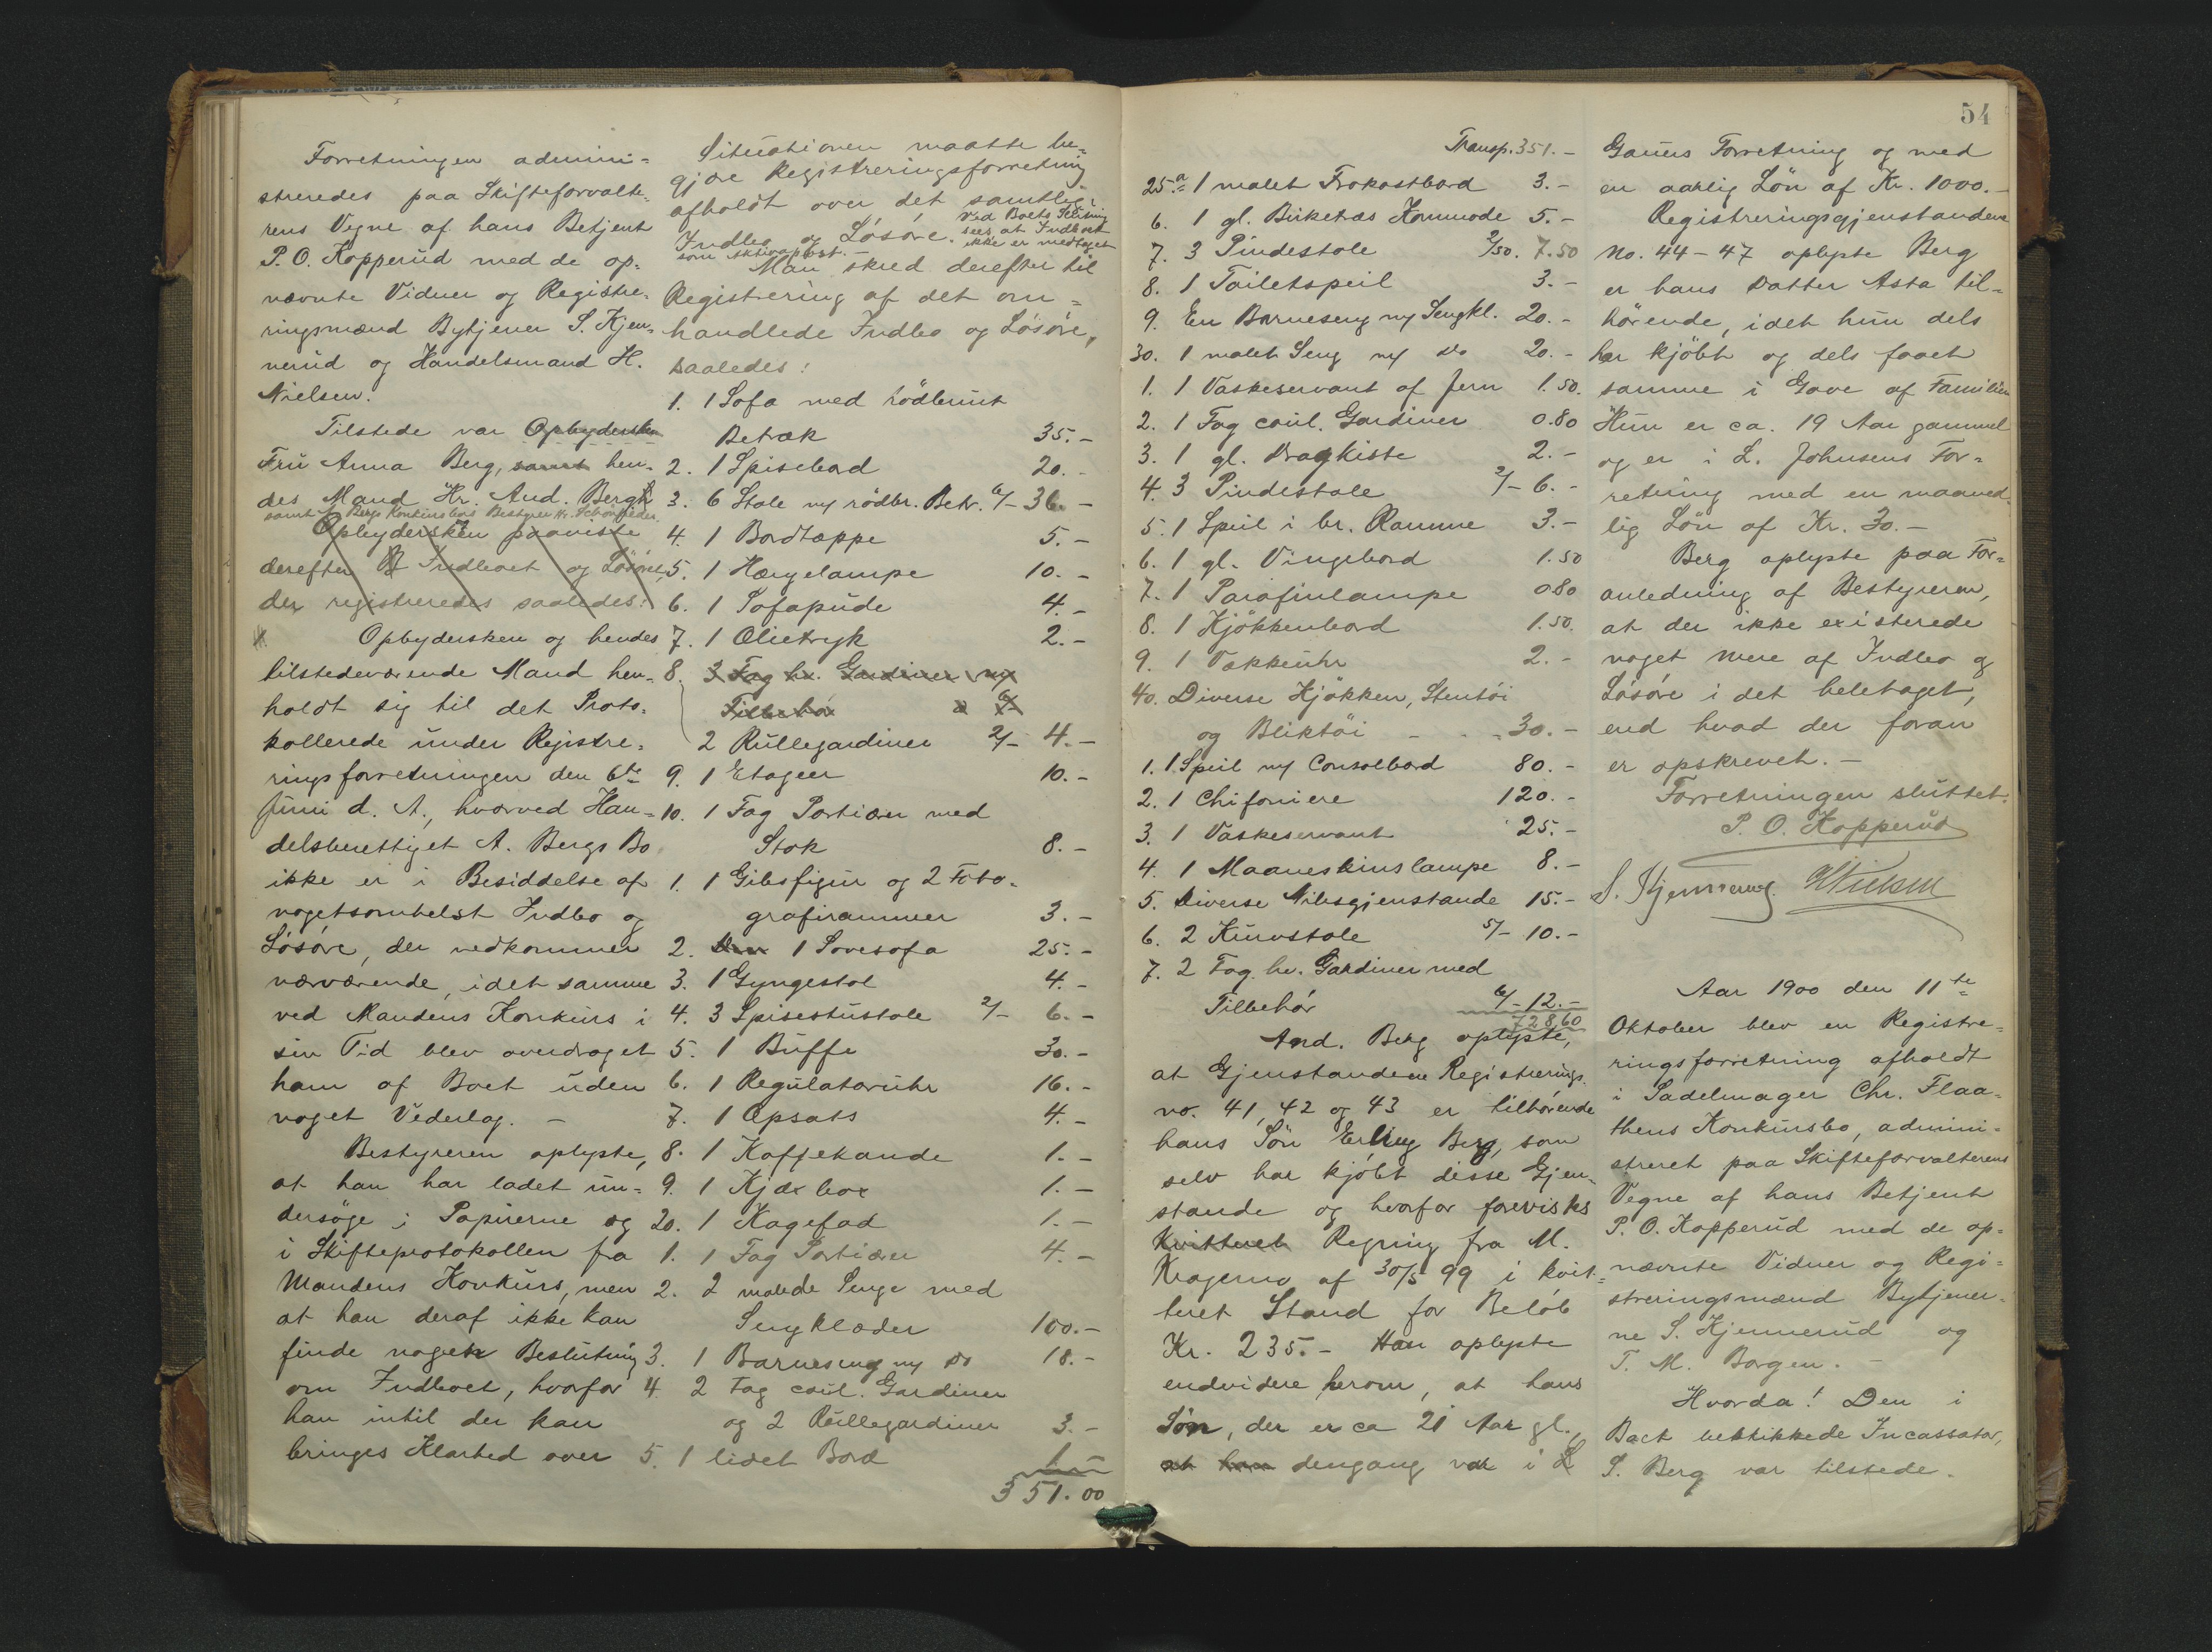 Forretningen admini=
streredes paa Skifteforvalte-
rens Vegne af hans Betjent
P. O. Kopperud med de op-
nævnte Vidner og Registre-
ringsmænd Bytjener S. Kjen-
nerud og Handelsmand H.
Nielsen.
Tilstede var Opbydersken
Fru Anna Berg, samt hen-
des Mand Hr. And. Berg
samt A. Bergs Konkursbos Bestyrer Hr.
Opbydersken paaviste
derefter Indboet og Løsøret,
der registreredes saaledes:
Opbydersken og hendes
tilstedeværende Mand hen-
holdt sig til det Proto-
kollerede under Registre-
ringsforretningen den 6te
Juni d. A., hvorved Han-
delsberettiget A. Bergs Bo
ikke er i Besiddelse af
nogetsomhelst Indbo og
Løsøre, der vedkommer
nærværende, idet samme
ved Mandens Konkurs i
sin Tid blev overdraget
ham af Boet uden
noget Vederlag. –
Bestyreren oplyste,
at han har ladet un-
dersøge i Papirerne og
i Skifteprotokollen fra
Mandens Konkurs, men
at han deraf ikke kan
finde nogen Beslutning
om Indboet, hvorfor
han intil der kan
bringes Klarhed over
Situationen maatte be-
gjære Registreringsforretning
afholdt over det samtlige
Indbo og Løsøre. Ved Boets Slutning
sees at Indboet
ikke er medtaget
som aktivapost. –
Man skred derefter til
Registrering af det om-
handlede Indbo og Løsøre,
saaledes:
1. 1 Sofa med rödbrunt
Betræk 35.–
2. 1 Spisebord 20.–
3. 6 Stole m/ rödbr. Betr. 6/– 36.–
4. 1 Bordtæppe 5.–
5. 1 Hængelampe 10.–
6. 1 Sofapude 4.–
7. 1 Olietryk 2.–
8. 3 Fag hv. Gardiner m/
Tilbehör a 6/
2 Rullegardiner 2/– 4.–
9. 1 Etageer 10.–
10. 1 Fag Portierer med
Stok 8.–
1. 1 Gibsfigur og 2 Foto-
grafirammer 3.–
2. 1 Sovesofa 25.–
3. 1 Gyngestol 4.–
4. 3 Spisestustole 2/– 6.–
5. 1 Buffe 30.–
6. 1 Regulatoruhr 16.–
7. 1 Opsats 4.–
8. 1 Kaffekande 1.–
9. 1 1.–
20. 1 Kagefad 1.–
1. 1 Fag Portierer 4.–
2. 2 malede Senge med
Sengklæder 100.–
3. 1 Barneseng m/ do 18.–
4. 2 Fag coul. Gardiner
og 2 Rullegardiner 3.–
5. 1 lidet Bord 1.–
351.00
54
Transp. 351.–
25a 1 malet Frokostbord 3.–
6. 1 gl. Birketræs Kommode 5.–
7. 3 Pindestole 2/50. 7.50
8. 1 Toiletspeil 3.–
9. En Barneseng m/ Sengkl. 20.–
30. 1 malet Seng m/ do 20.–
1. 1 Vaskeservant af Jern 1.50.
2. 1 Fag coul. Gardiner 0.80
3. 1 gl. Dragkiste 2.–
4. 3 Pindestole 2/– 6.–
5. 1 Speil i br. Ramme 3.–
6. 1 gl. Vingebord 1.50
7. 1 Parafinlampe 0.80
8. 1 Kjökkenbord 1.50.
9. 1 Vækkeuhr 2.–
40. Diverse Kjökken, Stentöi
og Bliktöi – – 30.–
1. 1 Speil m/ Consolbord 80.–
2. 1 Chifoniere 120.–
3. 1 Vaskeservant 25.–
4. 1 Maaneskinslampe 8.–
5. Diverse Nibsgjenstande 15.–
6. 2 Kurvstole 5/– 10.–
7. 2 Fag hv. Gardiner med
Tilbehör 6/– 12.–
728.60
And. Berg oplyste,
at Gjenstandene Registrerings-
no. 41, 42 og 43 er tilhörende
hans Sön Erling Berg, som
selv har kjöbt disse Gjen-
stande og hvorfor forevistes
kvitteret Regning fra M.
Kragerno af 30/5 99 i kvit-
teret Stand for Belöb
Kr. 235.– Han oplyste
endvidere herom, at hans
Sön, der er ca 21 Aar gl.,
at han dengang var i L
Gauers Forretning og med
en aarlig Lön af Kr. 1000.–
Registreringsgjenstandene
No. 44–47 oplyste Berg
er hans Datter Asta til-
hörende, idet hun dels
har kjöbt og dels faaet
samme i Gave af Familien
Hun er ca. 19 Aar gammel
og er i L. Johnsens For-
retning med en maaned-
lig Lön af Kr. 30.–
Berg oplyste paa For-
anledning af Bestyreren,
at der ikke existerede
noget mere af Indbo og
Løsøre i det heletaget,
end hvad der foran
er opskrevet. –
Forretningen sluttet.
P. O. Kopperud
S. Kjennerud. HNielsen
Aar 1900 den 11te
Oktober blev en Registre-
ringsforretning afholdt
i Sadelmager Chr. Flaa-
thens Konkursbo, admini-
streret paa Skifteforvalterens
Vegne af hans Betjent
P. O. Kopperud med de op-
nævnte Vidner og Regi-
streringsmænd Bytjener-
ne S. Kjennerud og
T. M. Borgen. –
Hvorda! Den i
Boet beskikkede Incassator,
S. Berg var tilstede.